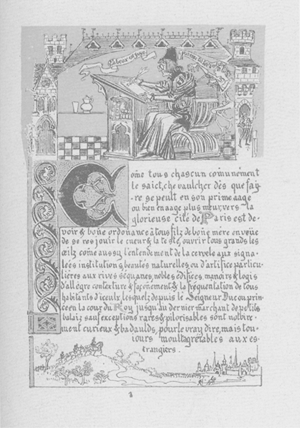 Come tous chascun comunement
le saict, chevaulcher dès que fay-
re se peult en son prime aage
ou ben en aage plus meur vers la
glorieuse cité de Paris est de-
voir & bone ordonance à tous filz de bone mère en
de se resjouir le cueur & la teste, ouvrir tous grands les
œilz come aussy l'entendement de la cervele aux signa-
lees institutions & beautés naturelles ou d'artifices particu-
lières aux rives séquanes, nobles édifices, manoirs & logis
d'allegre contexture & façonement & la fréquentation de tous
habitants d'iceulx, lesquelz depuis le Seigneur Duc ou prin-
en la cour du Roy jusqu'au dernier marchant de petits
balais sauf exceptions rares & pilorisables sont
curieux & badaulds, pour le vray dire, mais tou-
iours moult agréables aux es-
trangiers.